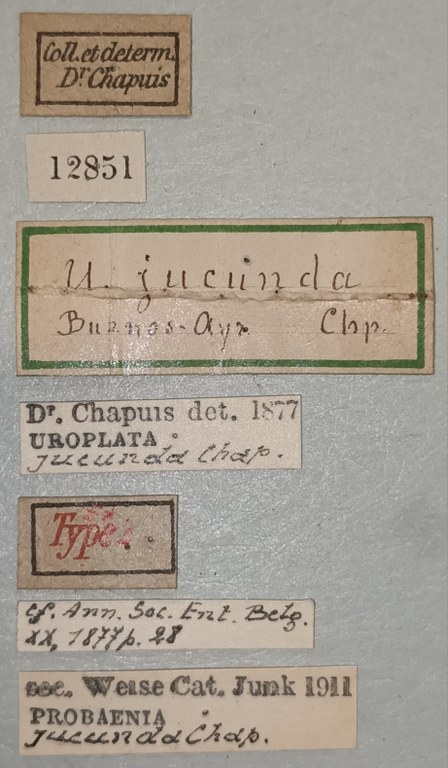 Coll. et determ.
Dr. Chapuis
12851
U. jucunda
Buenos-Ayr. Chp.
Dr. Chapuis det. 1877
UROPLATA
jucunda Chap.
Type
cf. Ann. Soc. Ent. Belg.
XX, 1877 p. 28
sec. Weise Cat. Junk 1911
PROBAENIA
jucunda Chap.